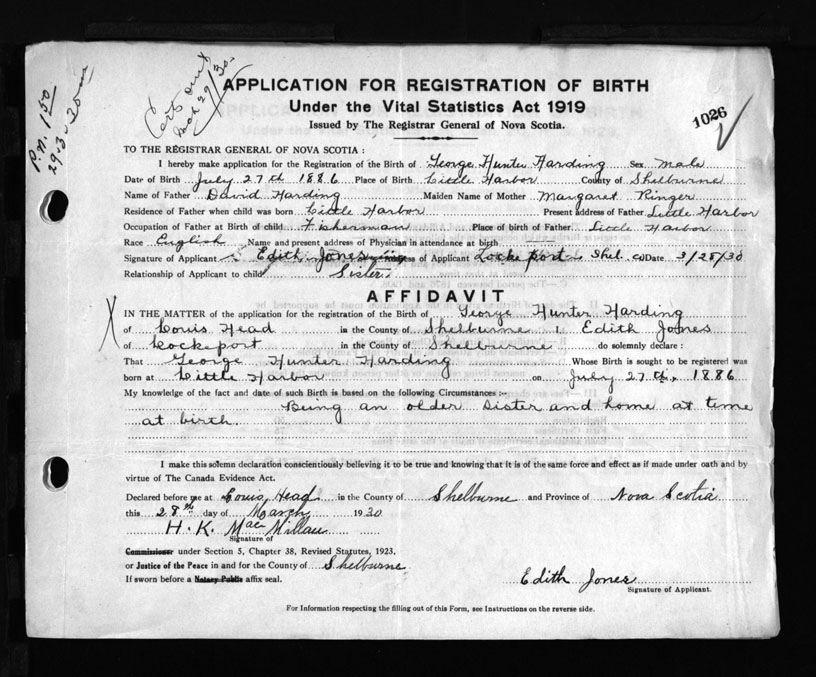 P.N. 1 50
29-3-30
Cert out
Mar 29/30
APPLICATION FOR REGISTRATION OF BIRTH
Under the Vital Statistics Act 1919
Issued by The Registrar General of Nova Scotia.
1026
TO THE REGISTRAR GENERAL OF NOVA SCOTIA :
I hereby make application for the Registration of the Birth of George Hunter Harding Sex Male
Date of Birth July 27th 1886 Place of Birth Little Harbor County of Shelburne
Name of Father David Harding Maiden Name of Mother Margaret Ringer
Residence of Father when child was born Little Harbor Present address of Father Little Harbor
Occupation of Father at Birth of child Fisherman Place of birth of Father Little Harbor
Race English Name and present address of Physician in attendance at birth
Signature of Applicant Edith Jones of Applicant Lockeport Shel. Co Date 3/28/30
Relationship of Applicant to child Sister
AFFIDAVIT
IN THE MATTER of the application for the registration of the Birth of George Hunter Harding
of Louis Head in the County of Shelburne I, Edith Jones
of Lockeport in the County of Shelburne do solemnly declare :
That George Hunter Harding Whose Birth is sought to be registered was
born at Little Harbor on July 27th, 1886
My knowledge of the fact and date of such Birth is based on the following Circumstances :-
Being an older sister and home at time
at birth.
I make this solemn declaration conscientiously believing it to be true and knowing that it is of the same force and effect as if made under oath and by
virtue of The Canada Evidence Act.
Declared before me at Louis Head in the County of Shelburne and Province of Nova Scotia
this 28th day of March 1930
H. K. MacMillan
Signature of
Commissioner under Section 5, Chapter 38, Revised Statutes, 1923,
or Justice of the Peace in and for the County of Shelburne
If sworn before a Notary Public affix seal.
Edith Jones
Signature of Applicant.
For Information respecting the filling out of this Form, see Instructions on the reverse side.